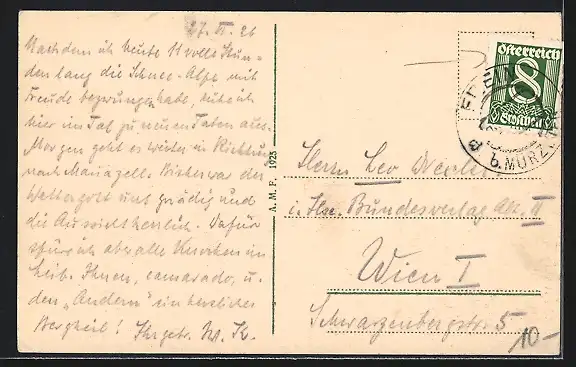 27. VI. 26
Nachdem ich heute 11 volle Stun-
den lang die Schnee-Alpe mit
Freude bezwungen habe, ruhe ich
hier im Tal zu neuen Taten aus.
Morgen geht es weiter in Richtung
nach Mariazell. Bisher war der
Wettergott uns gnädig und
die Aussicht herrlich. Dafür
spür ich aber alle Knochen im
Leib. Ihnen, camarado, u.
den „Andern" ein herzliches
Bergheil! Ihr getr. W. K.
A. M. F. 1925
Österreich
8
Groschen
b. MÜRZ
Herrn Leo
i. Hse. Bundesverlag Abt. II
Wien I
Schwarzenbergstr. 5
10-